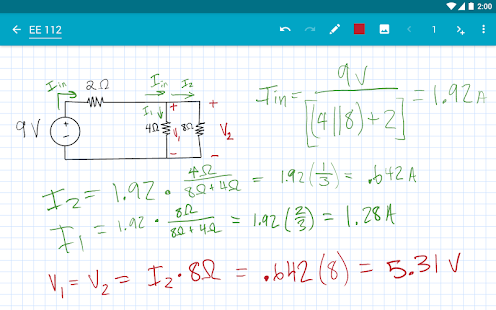 2:00
EE 112
1
Iin 2Ω Iin I2
I1
9V + - 4Ω + V1 - 8Ω + V2 -
Iin = 9V / [(4||8)+2] = 1.92A
I2 = 1.92 · 4Ω / 8Ω+4Ω = 1.92 (1/3) = .642A
I1 = 1.92 · 8Ω / 8Ω+4Ω = 1.92 (2/3) = 1.28A
V1 = V2 = I2 · 8Ω = .642(8) = 5.31 V